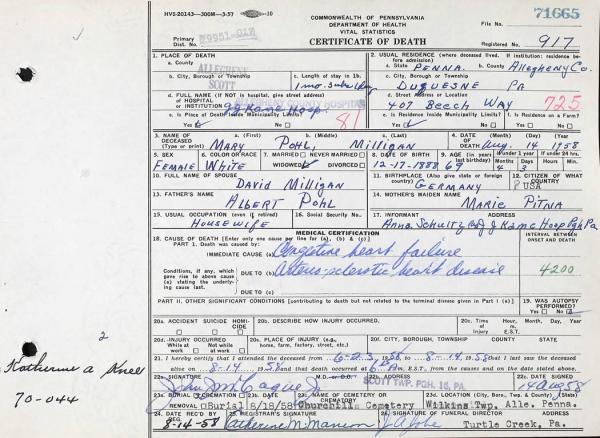 HVS-20143—300M—3-57 10
71665
COMMONWEALTH OF PENNSYLVANIA
DEPARTMENT OF HEALTH
VITAL STATISTICS
File No.
Primary Dist. No. 79951-01Z
CERTIFICATE OF DEATH
Registered No. 917
1. PLACE OF DEATH
a. County ALLEGHENY
b. City, Borough or Township SCOTT
c. Length of stay in 1b.
d. FULL NAME (If NOT in hospital, give street address) OF HOSPITAL or INSTITUTION
e. Is Place of Death Inside Municipality Limits? Yes No
81
2. USUAL RESIDENCE (where deceased lived. If institution: residence before admission)
a. State PENNA. b. County Allegheny Co.
c. City, Borough or Township DUQUESNE PA
d. Street Address or Location 407 Beech Way
725
e. Is Residence Inside Municipality Limits? Yes No
f. Is Residence on a Farm? Yes No
3. NAME OF DECEASED (Type or print) a. (First) b. (Middle) c. (Last)
MARY POHL, Milligan
4. DATE OF DEATH (Month) (Day) (Year)
Aug. 14 1958
5. SEX Female
6. COLOR OR RACE White
7. MARRIED NEVER MARRIED WIDOWED DIVORCED
8. DATE OF BIRTH 12-17-1888
9. AGE (in years last birthday) 69
If Under 1 year If under 24 hrs.
Months Days Hours Min.
10. FULL NAME OF SPOUSE
David Milligan
11. BIRTHPLACE (Also give state or foreign country)
Germany
12. CITIZEN OF WHAT COUNTRY? USA
13. FATHER'S NAME
Albert Pohl
14. MOTHER'S MAIDEN NAME
Marie Pitna
15. USUAL OCCUPATION (even if retired)
Housewife
16. Social Security No.
17. INFORMANT Address
Anna Schultz
MEDICAL CERTIFICATION
18. CAUSE OF DEATH [Enter only one cause per line for (a), (b) & (c)]
PART 1. Death was caused by:
IMMEDIATE CAUSE (a) Congestive heart failure
INTERVAL BETWEEN ONSET AND DEATH
Conditions, if any, which gave rise to above cause (a) stating the underlying cause last.
DUE TO (b) Arterio-sclerotic heart disease
4200
DUE TO (c)
PART II. OTHER SIGNIFICANT CONDITIONS [contributing to death but not related to the terminal disease given in Part I (a)]
19. WAS AUTOPSY PERFORMED? Yes No
20a. ACCIDENT SUICIDE HOMICIDE
20b. DESCRIBE HOW INJURY OCCURRED.
20c. Time of Injury Hour E.S.T. Month, Day, Year
20d. INJURY OCCURRED While at work Not while at work
20e. PLACE OF INJURY (e.g., in or about home, farm, factory, street, etc.)
20f. CITY, BOROUGH, TOWNSHIP COUNTY STATE
21. I hereby certify that I attended the deceased from 6-23, 1956 to 8-14, 1958 that I last saw the deceased
alive on 8-14, 1958 and that death occurred at M., E.S.T., from the causes and on the date stated above.
22a. SIGNATURE M.D. D.O.
22b. ADDRESS SCOTT TWP. PGH. 16, PA.
22c. DATE SIGNED 14 Aug 58
23a. BURIAL CREMATION REMOVAL Burial
23b. DATE 8/18/58
23c. NAME OF CEMETERY OR CREMATORY Churchill Cemetery
23d. LOCATION (City, Boro, Twp., County & State)
Wilkins Twp. Alle. Penna.
24. DATE REC'D BY REG. 8-14-58
25. REGISTRAR'S SIGNATURE
Catherine M. Manion
26. SIGNATURE OF FUNERAL DIRECTOR ADDRESS
Turtle Creek, Pa.
2
Katherine A
70-044